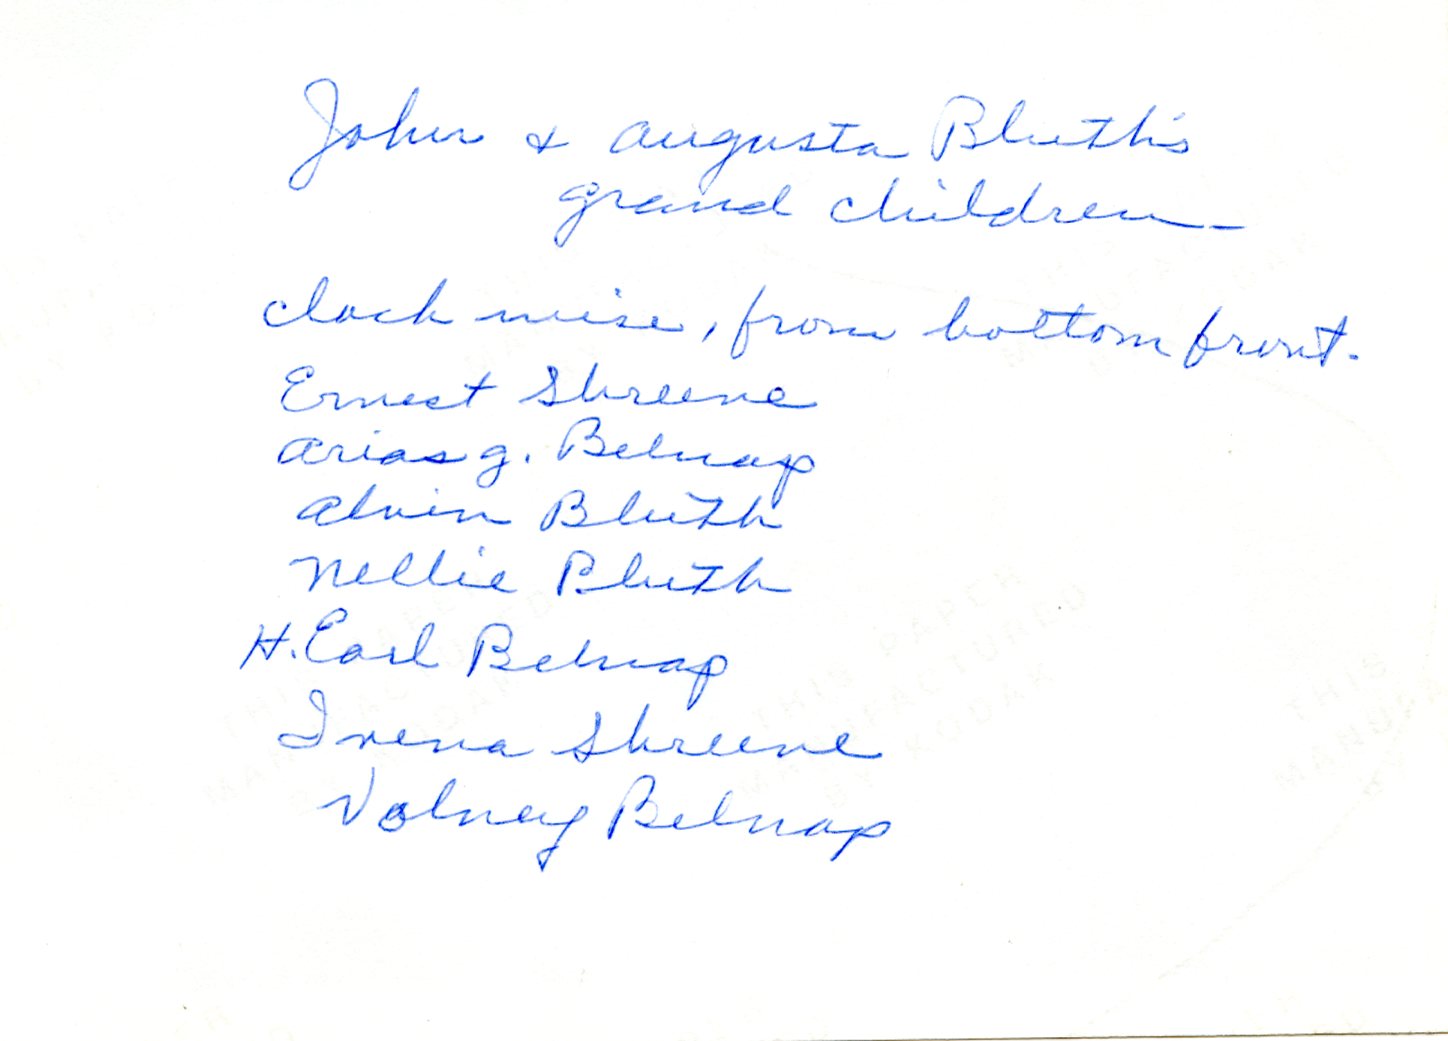 John & Augusta Bluth's
grand children -
clock wise, from bottom front.
Ernest Shreeve
Arias G. Belnap
Alvin Bluth
Nellie Bluth
H. Earl Belnap
Irena Shreeve
Volney Belnap
THIS PAPER
MANUFACTURED
BY KODAK